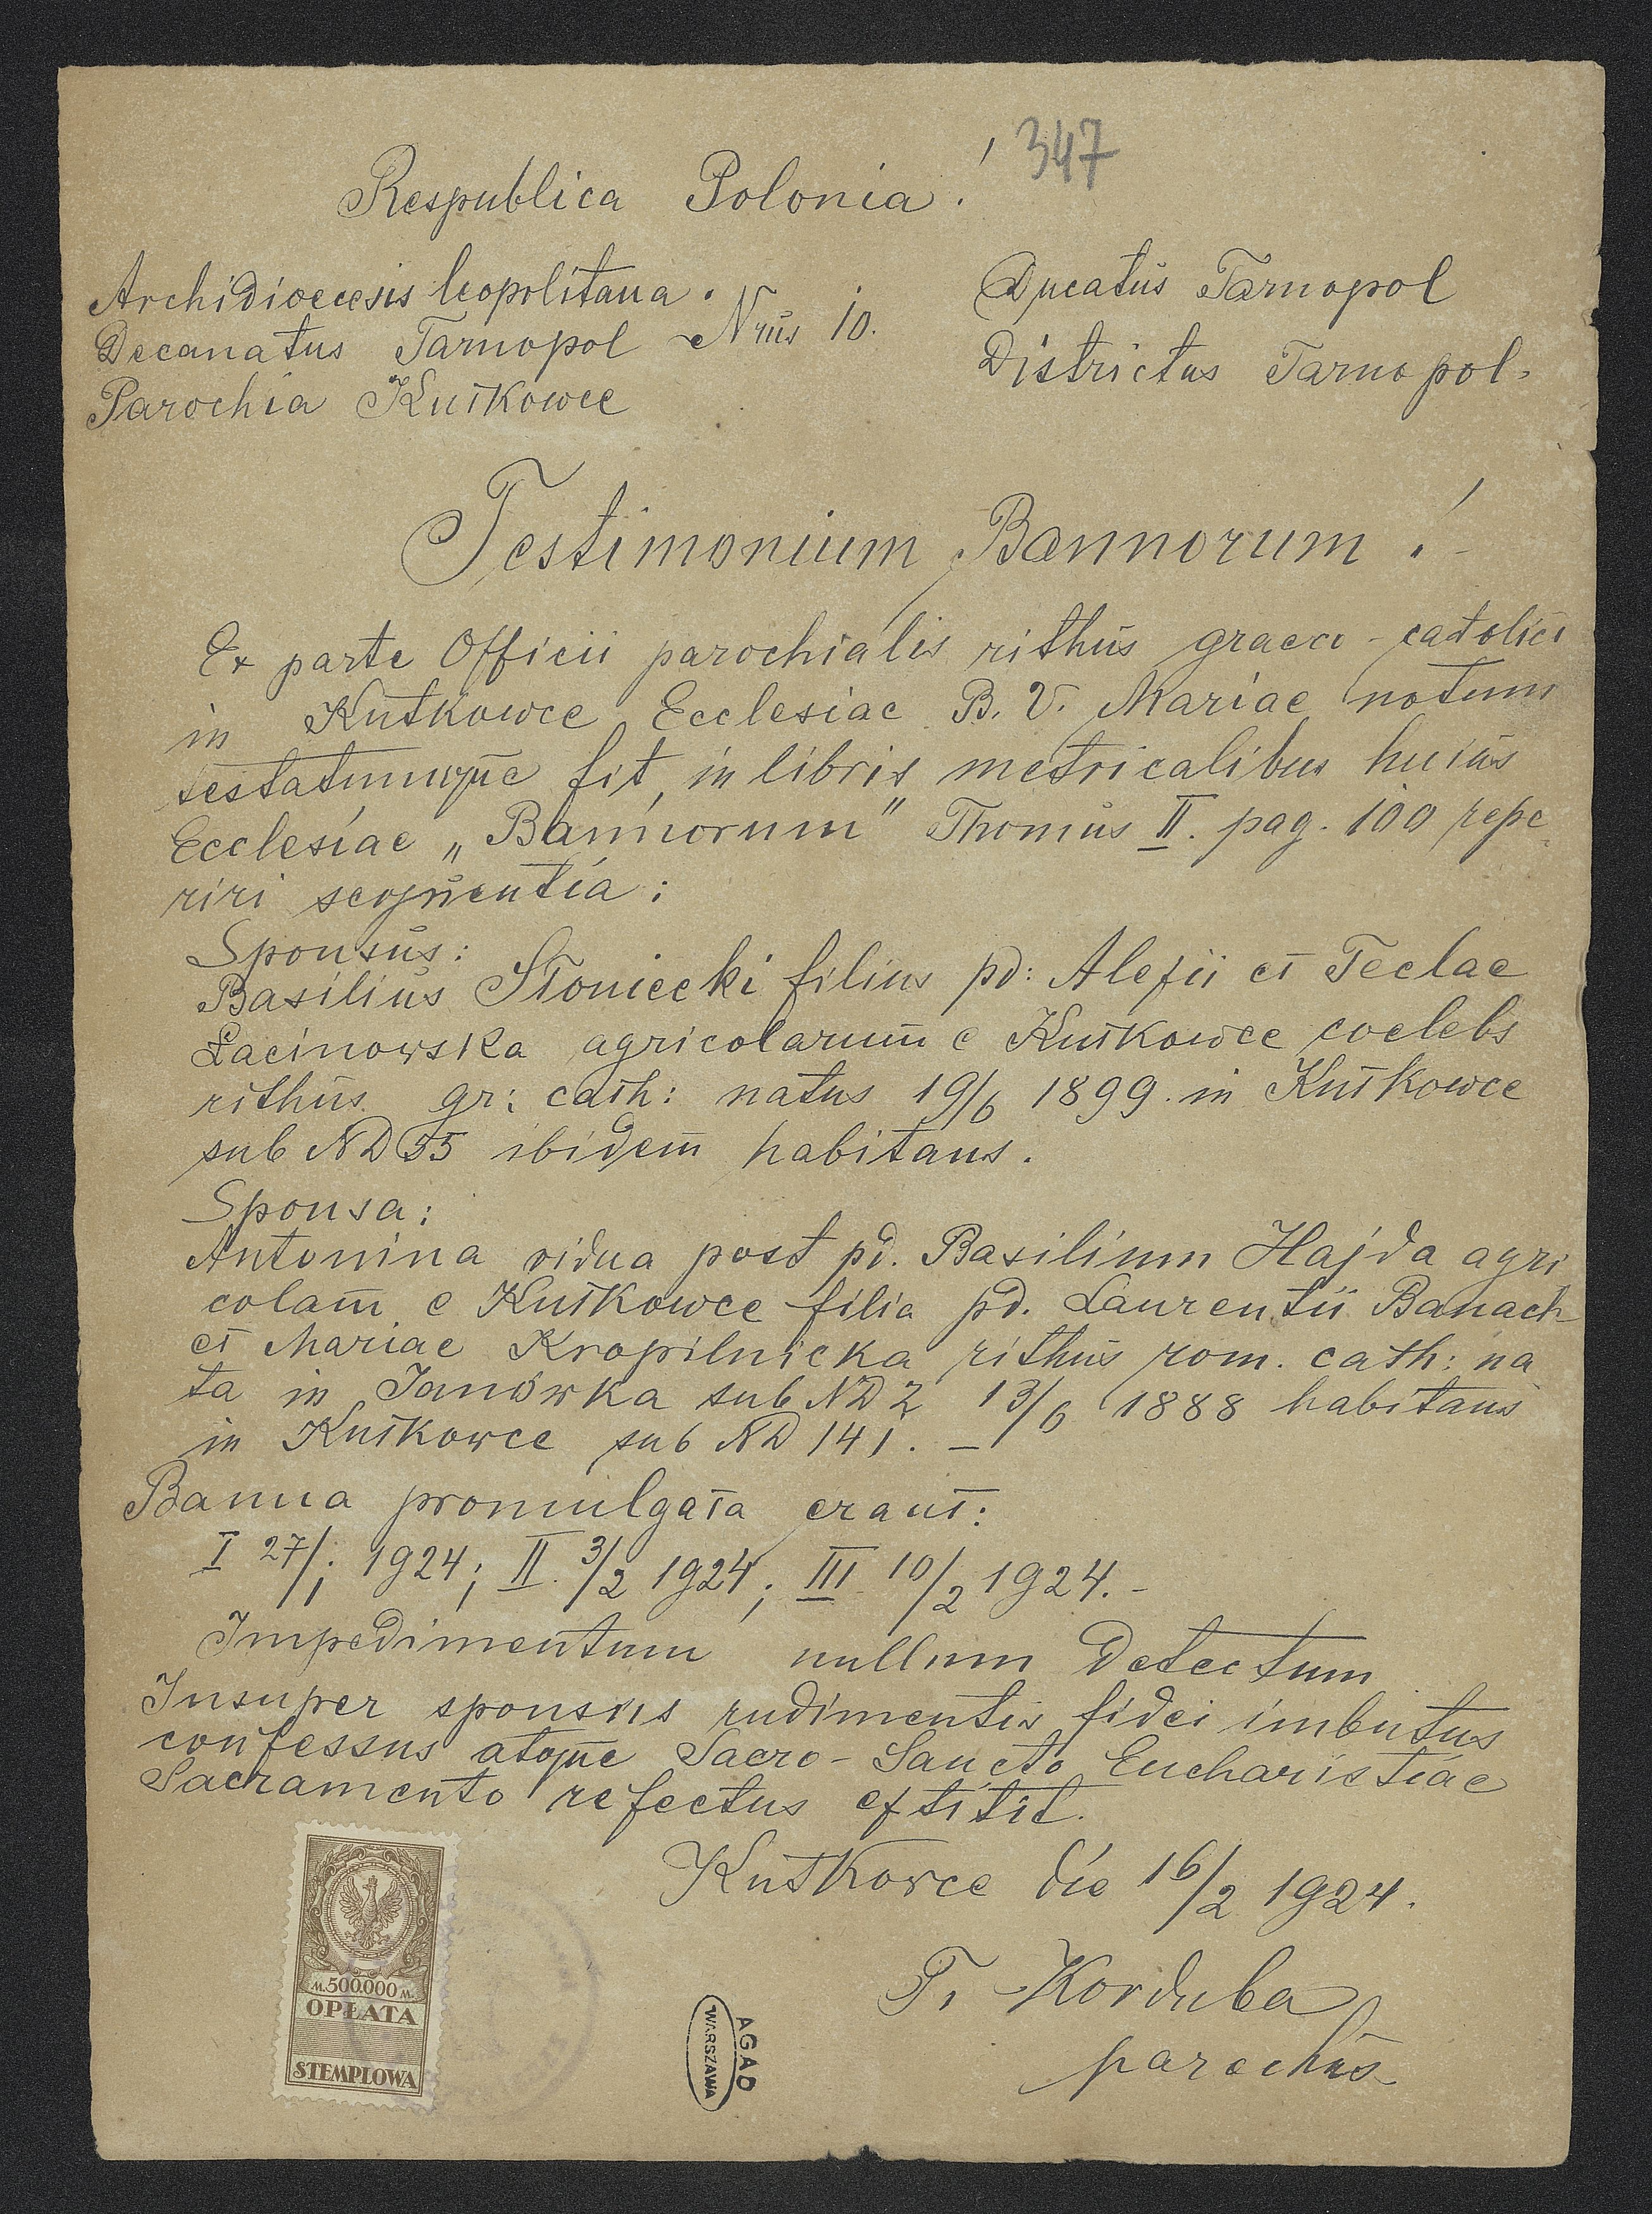 347
Respublica Polonia!
Archidioecesis leopolitana.
Decanatus Tarnopol
Parochia Kutkowce
Nrus 10.
Ducatus Tarnopol
Districtus Tarnopol.
Testimonium Bannorum!-
Ex parte Officii parochialis rithus graeco-catolici
in Kutkowce Ecclesiae B. V. Mariae notum
testatumque fit, in libris metricalibus huius
Ecclesiae „Bannorum" Thomus II. pag. 100 repe
riri sequentia:
Sponsus:
Basilius Słoniecki filius pd: Alexii et Teclae
Łacinowska agricolarum e Kutkowce coelebs
rithus gr: cath: natus 19/6 1899. in Kutkowce
sub ND 55 ibidem habitans.
Sponsa:
Antonina vidua post pd. Basilium Hajda agri
colam e Kutkowce filia pd. Laurentii Banach
et Mariae Kropilnicka rithus rom. cath: na
ta in Janówka sub ND 2 13/6 1888 habitans
in Kutkowce sub ND 141. -
Banna promulgata erant:
I 27/1 1924; II. 3/2 1924; III 10/2 1924.-
Impedimentum nullum detectum
Insuper sponsus rudimentis fidei imbutus
confessus atque Sacro-Sancto Eucharistiae
Sacramento refectus extitit.
Kutkowce die 16/2 1924.
T. Korduba
parochus
M. 500.000 M.
OPŁATA
STEMPLOWA
AGAD
WARSZAWA